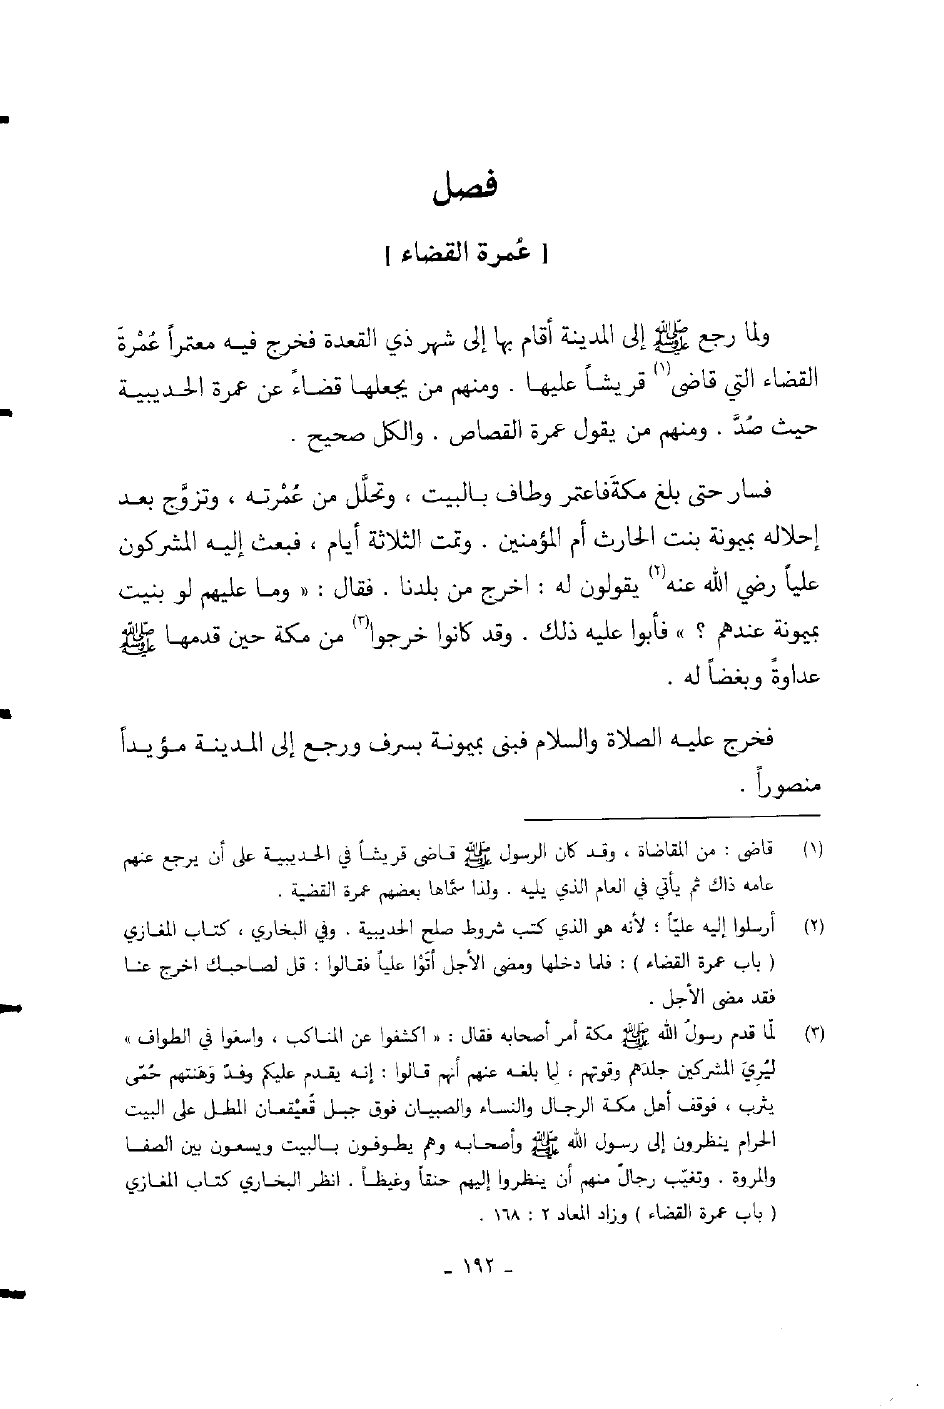 فصل
[ عُمرة القضاء ]
ولما رجع ﷺ إلى المدينة أقام بها إلى شهر ذي القعدة فخرج فيه معتمراً عُمْرةَ
القضاء التي قاضى(١) قريشاً عليها . ومنهم من يجعلها قضاءً عن عمرة الحديبية
حيث صُدَّ . ومنهم من يقول عمرة القصاص . والكل صحيح .
فسار حتى بلغ مكةَ فاعتمر وطاف بالبيت ، وتحلَّل من عُمْرته ، وتزوَّج بعد
إحلاله بميمونة بنت الحارث أم المؤمنين . وتمت الثلاثة أيام ، فبعث إليه المشركون
علياً رضي الله عنه(٢) يقولون له : اخرج من بلدنا . فقال : « وما عليهم لو بنيت
بميمونة عندهم ؟ » فأبوا عليه ذلك . وقد كانوا خرجوا(٣) من مكة حين قدمها ﷺ
عداوةً وبغضاً له .
فخرج عليه الصلاة والسلام فبنى بميمونة بسرف ورجع إلى المدينة مؤيداً
منصوراً .
(١) قاضى : من المقاضاة ، وقد كان الرسول ﷺ قاضى قريشاً في الحديبية على أن يرجع عنهم
عامه ذاك ثم يأتي في العام الذي يليه . ولذا سمّاها بعضهم عمرة القضية .
(٢) أرسلوا إليه عليّاً ؛ لأنه هو الذي كتب شروط صلح الحديبية . وفي البخاري ، كتاب المغازي
( باب عمرة القضاء ) : فلما دخلها ومضى الأجل أتَوْا علياً فقالوا : قل لصاحبك اخرج عنا
فقد مضى الأجل .
(٣) لمّا قدم رسولُ الله ﷺ مكة أمر أصحابه فقال : « اكشفوا عن المناكب ، واسعَوا في الطواف »
ليُرِيَ المشركين جلدَهم وقوتهم ، لِما بلغه عنهم أنهم قالوا : إنه يقدم عليكم وفدٌ وَهَنتهم حُمّى
يثرب ، فوقف أهل مكة الرجال والنساء والصبيان فوق جبل قُعيْقعان المطل على البيت
الحرام ينظرون إلى رسول الله ﷺ وأصحابه وهم يطوفون بالبيت ويسعون بين الصفا
والمروة . وتغيّب رجالٌ منهم أن ينظروا إليهم حنقاً وغيظاً . انظر البخاري كتاب المغازي
( باب عمرة القضاء ) وزاد المعاد ٢ : ١٦٨ .
ـ ١٩٢ ـ